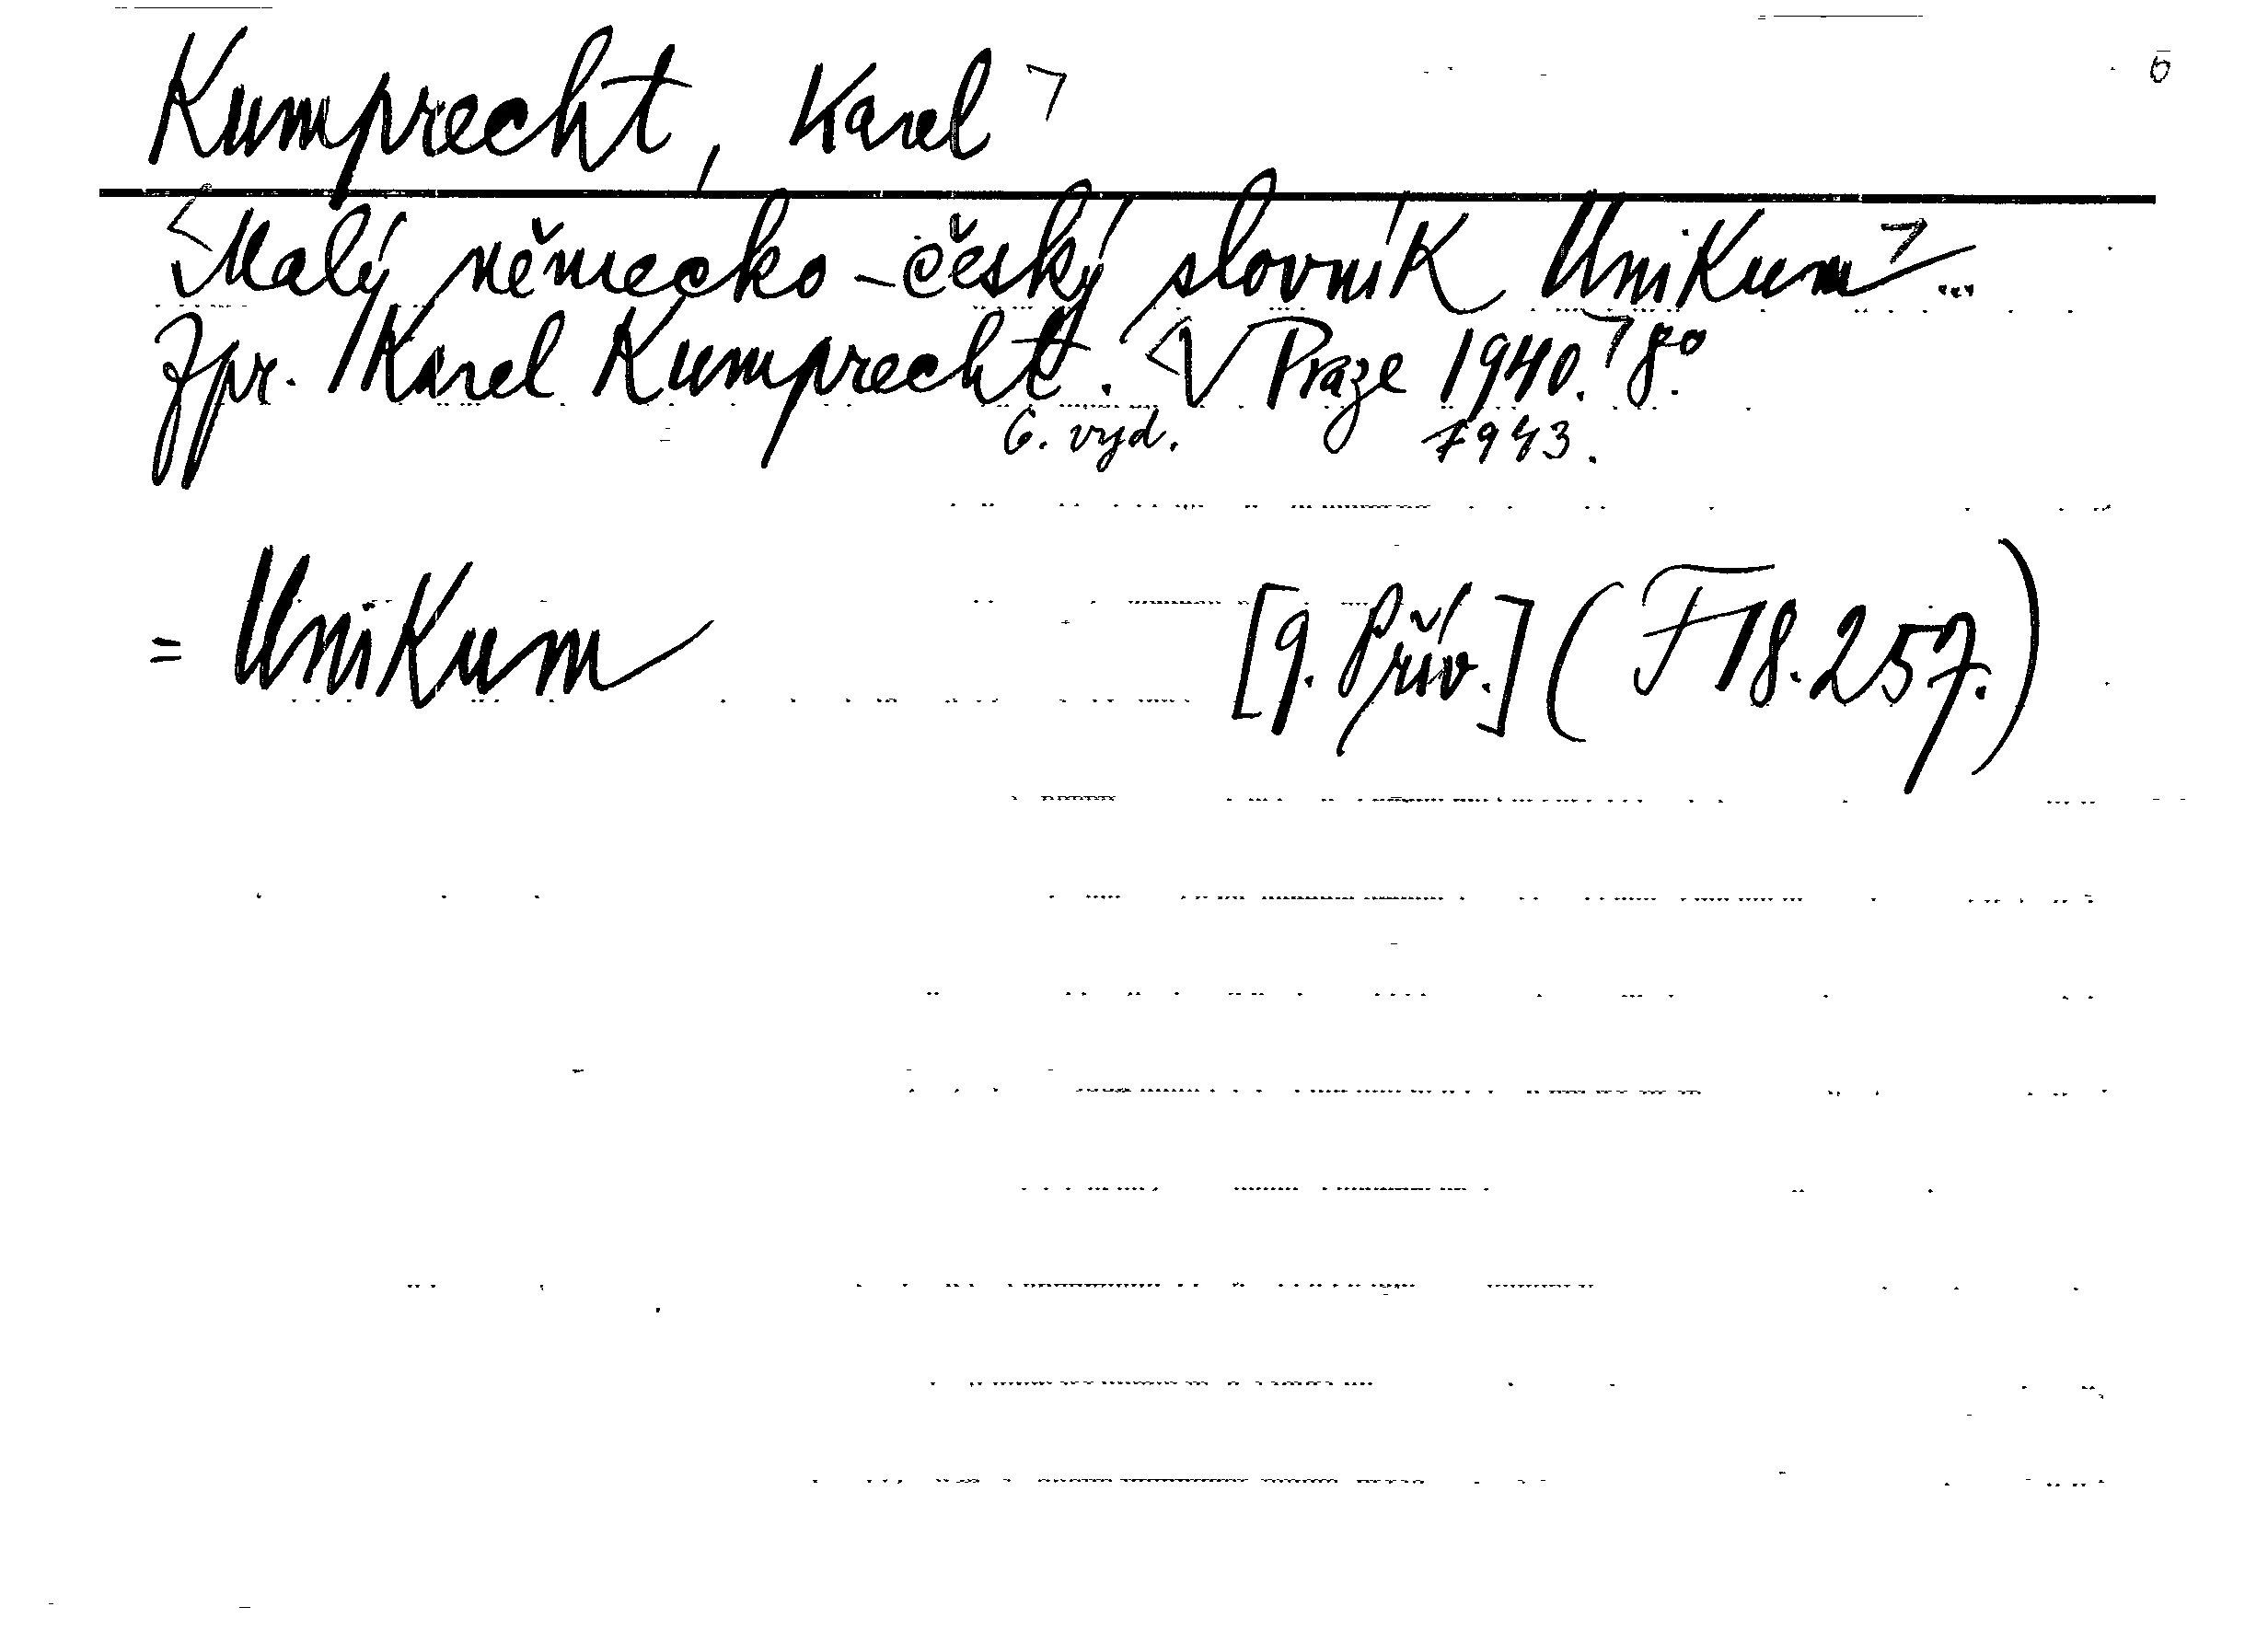 Kumprecht, Karel ⌝
<Malý německo-český slovník Unikum⌝...
Zpr. Karel Kumprecht. <V Praze 1940.⌝ 8°.
6. vyd. 1943.
= Unikum [q. Přív.] (F 18.257.)